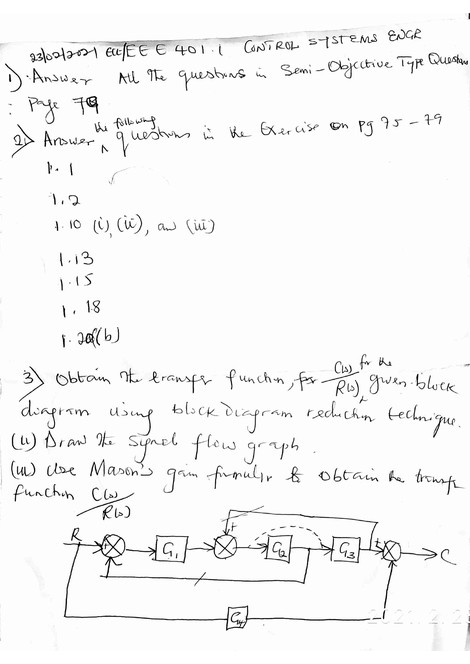 23/02/2021 ELE/EEE 401.1 CONTROL SYSTEMS ENGR
1) Answer All the questions in Semi-Objective Type Question
: Page 79
2) Answer the following questions in the Exercise on pg 75-79
1.1
1.2
1.10 (i), (ii), and (iii)
1.13
1.15
1.18
(b)
3) Obtain the transfer function, for C(s)/R(s) for the given block
diagram using block diagram reduction technique.
(ii) Draw the signal flow graph.
(iii) Use Mason's gain formular to obtain the transfer
function C(s)/R(s)
R + G1 + G2 G3 + C
-
G4